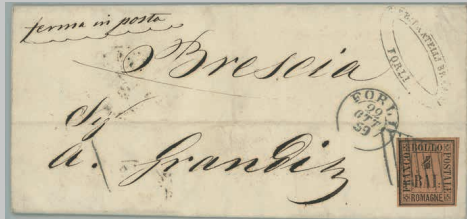 ferma in posta
FRATELLI
FORLI
Brescia
FORLI
29
OTT
59
Sig
A. Grandi
FRANCO BOLLO POSTALE
BAJ.
ROMAGNE